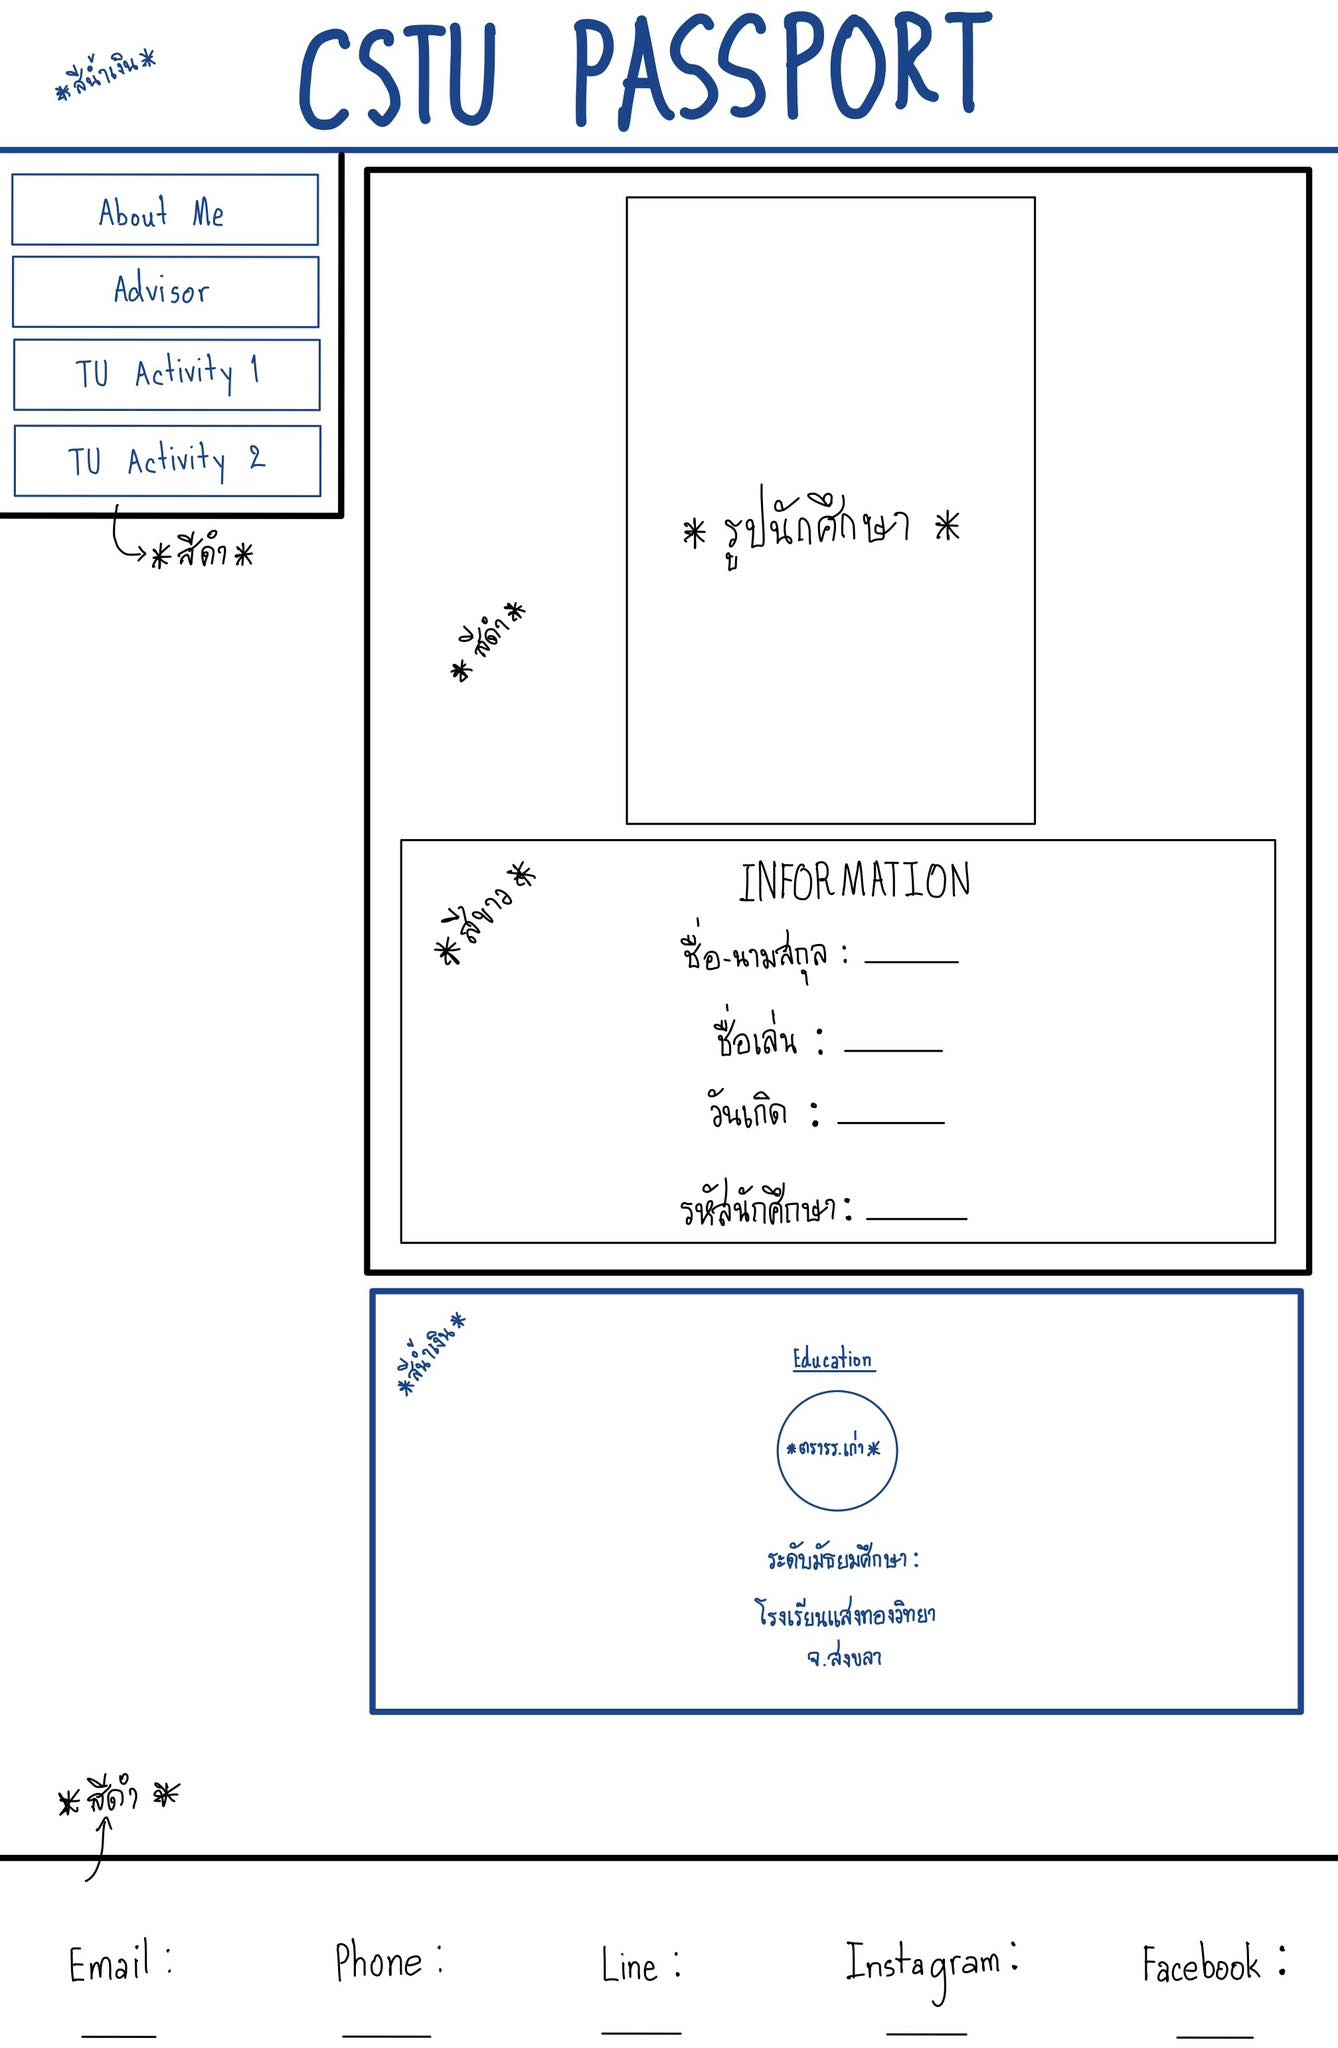 CSTU PASSPORT
*สีน้ำเงิน*
About Me
Advisor
TU Activity 1
TU Activity 2
*สีดำ*
*รูปนักศึกษา*
*สีดำ*
*สีขาว*
INFORMATION
ชื่อ-นามสกุล : ______
ชื่อเล่น : ______
วันเกิด : ______
รหัสนักศึกษา : ______
*สีน้ำเงิน*
Education
*ตรารร.เก่า*
ระดับมัธยมศึกษา :
โรงเรียนแสงทองวิทยา
จ.สงขลา
*สีดำ*
Email :
Phone :
Line :
Instagram :
Facebook :